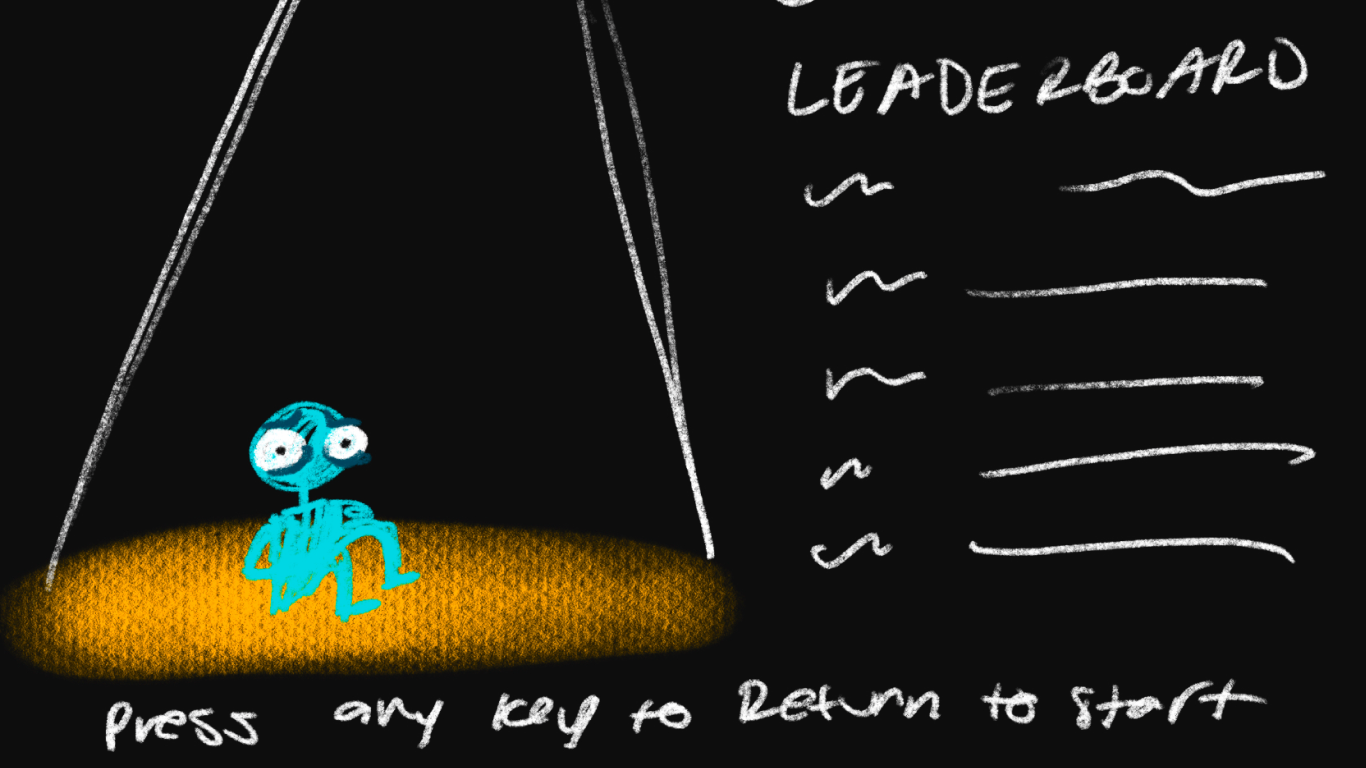 LEADERBOARD
Press any key to Return to start